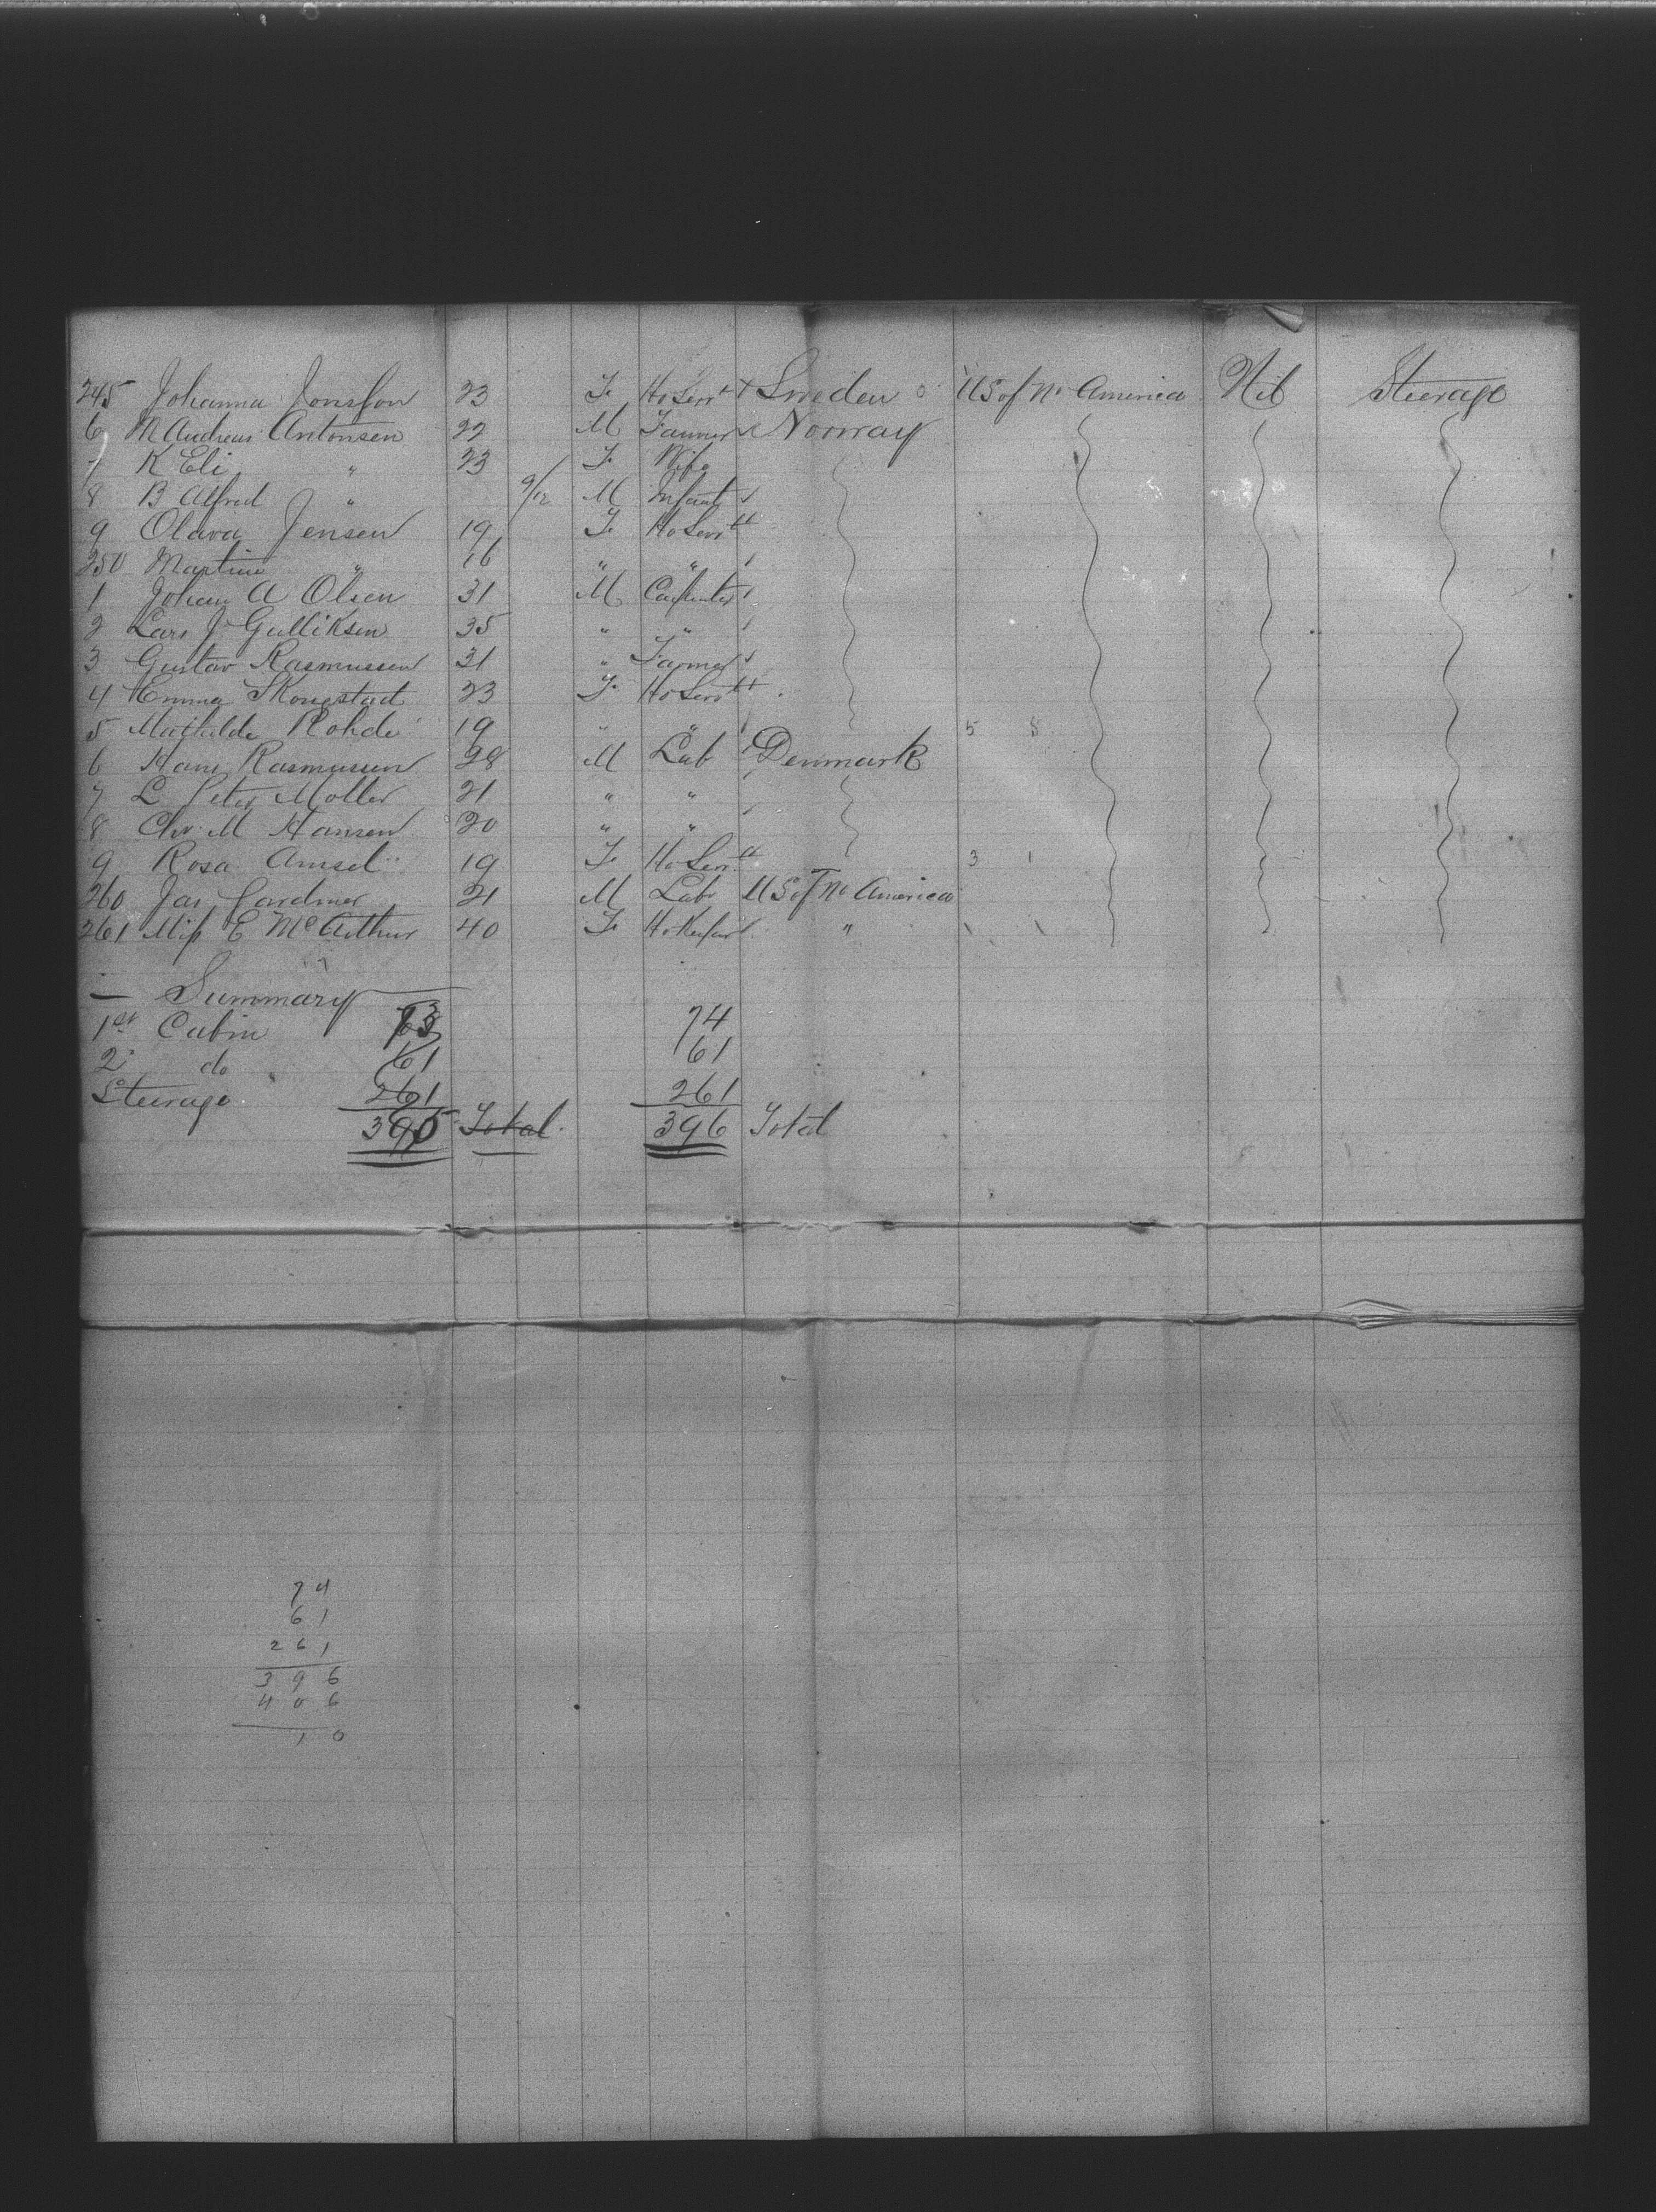 245 Johanna Jonsson 23 F Ho Servt Sweden US of No America Nil Steerage
6 M Andreas Antonsen 22 M Farmer Norway
7 K Eli " 23 F Wife
8 B Alfred " 9/12 M Infant
9 Olava Jensen 19 F Ho Servt
250 Martine " 16 " "
1 Johan A Olsen 31 M Carpenter
2 Lars J Gulliksen 35 " "
3 Gustav Rasmussen 31 " Farmer
4 Emma Skougstad 23 F Ho Servt
5 Mathilde Rohde 19 " " 5 8
6 Hans Rasmussen 28 M Lab Denmark
7 L Peter Moller 21 " "
8 Chr. M Hansen 20 " "
9 Rosa Amsel 19 F Ho Servt 3 1
260 Jas Gardiner 21 M Labr US of No America
261 Miss E McArthur 40 F "
— Summary
1st Cabin 73 74
2 do 61 61
Steerage 261 261
395 Total 396 Total
74
61
261
396
406
10